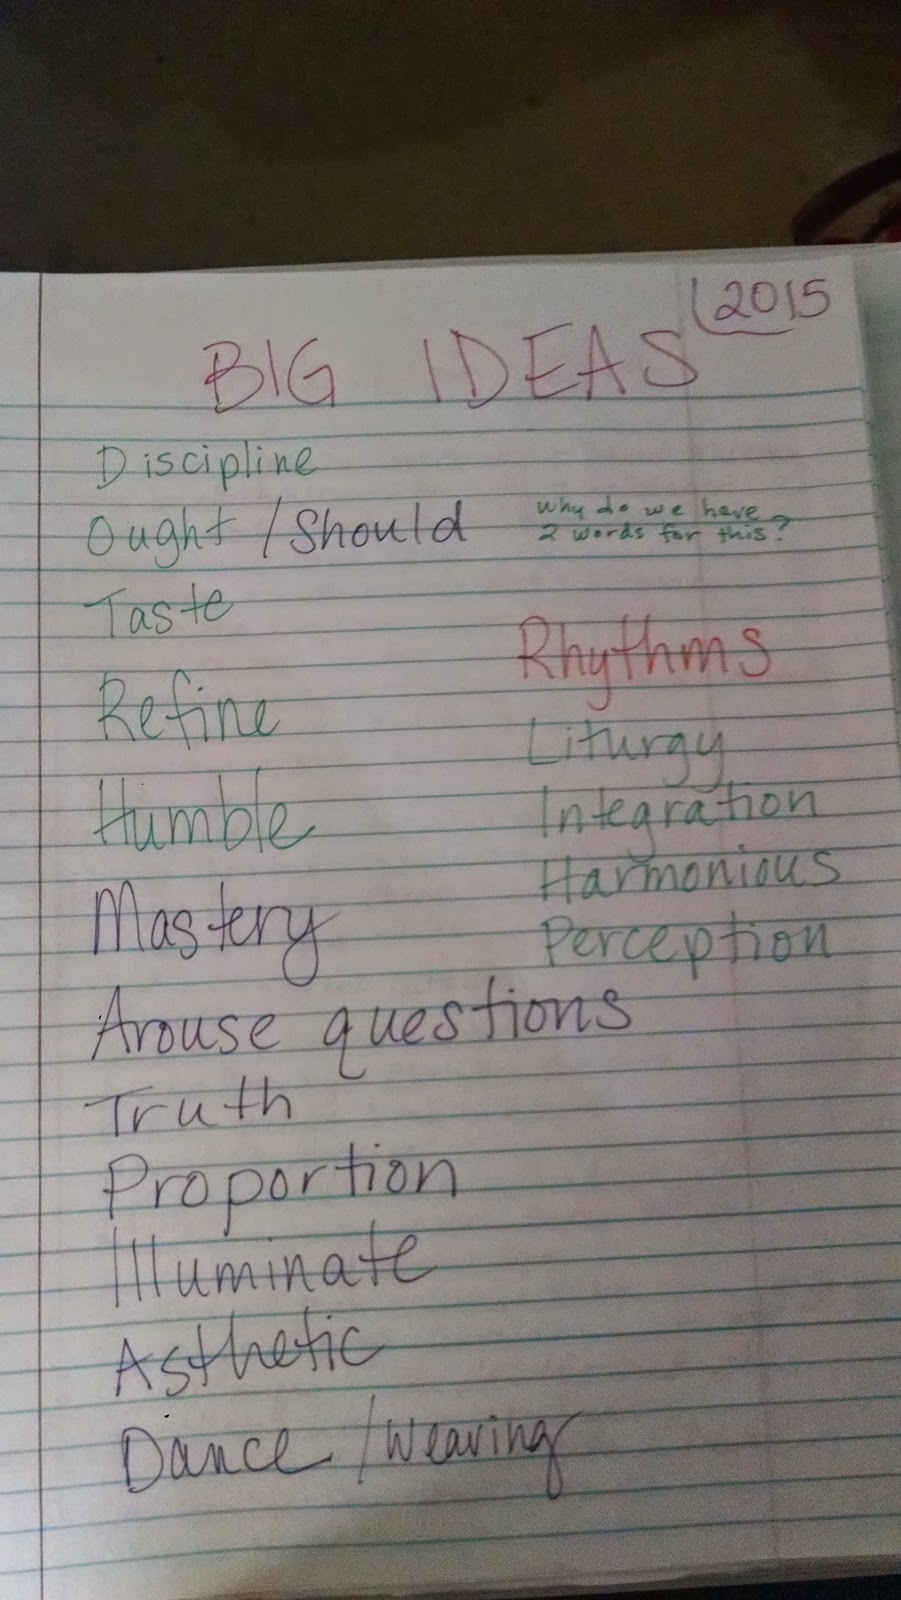 2015
BIG IDEAS
Discipline
Ought / Should
why do we have
2 words for this?
Taste
Refine
Humble
Mastery
Arouse questions
Truth
Proportion
Illuminate
Asthetic
Dance / Weaving
Rhythms
Liturgy
Integration
Harmonious
Perception